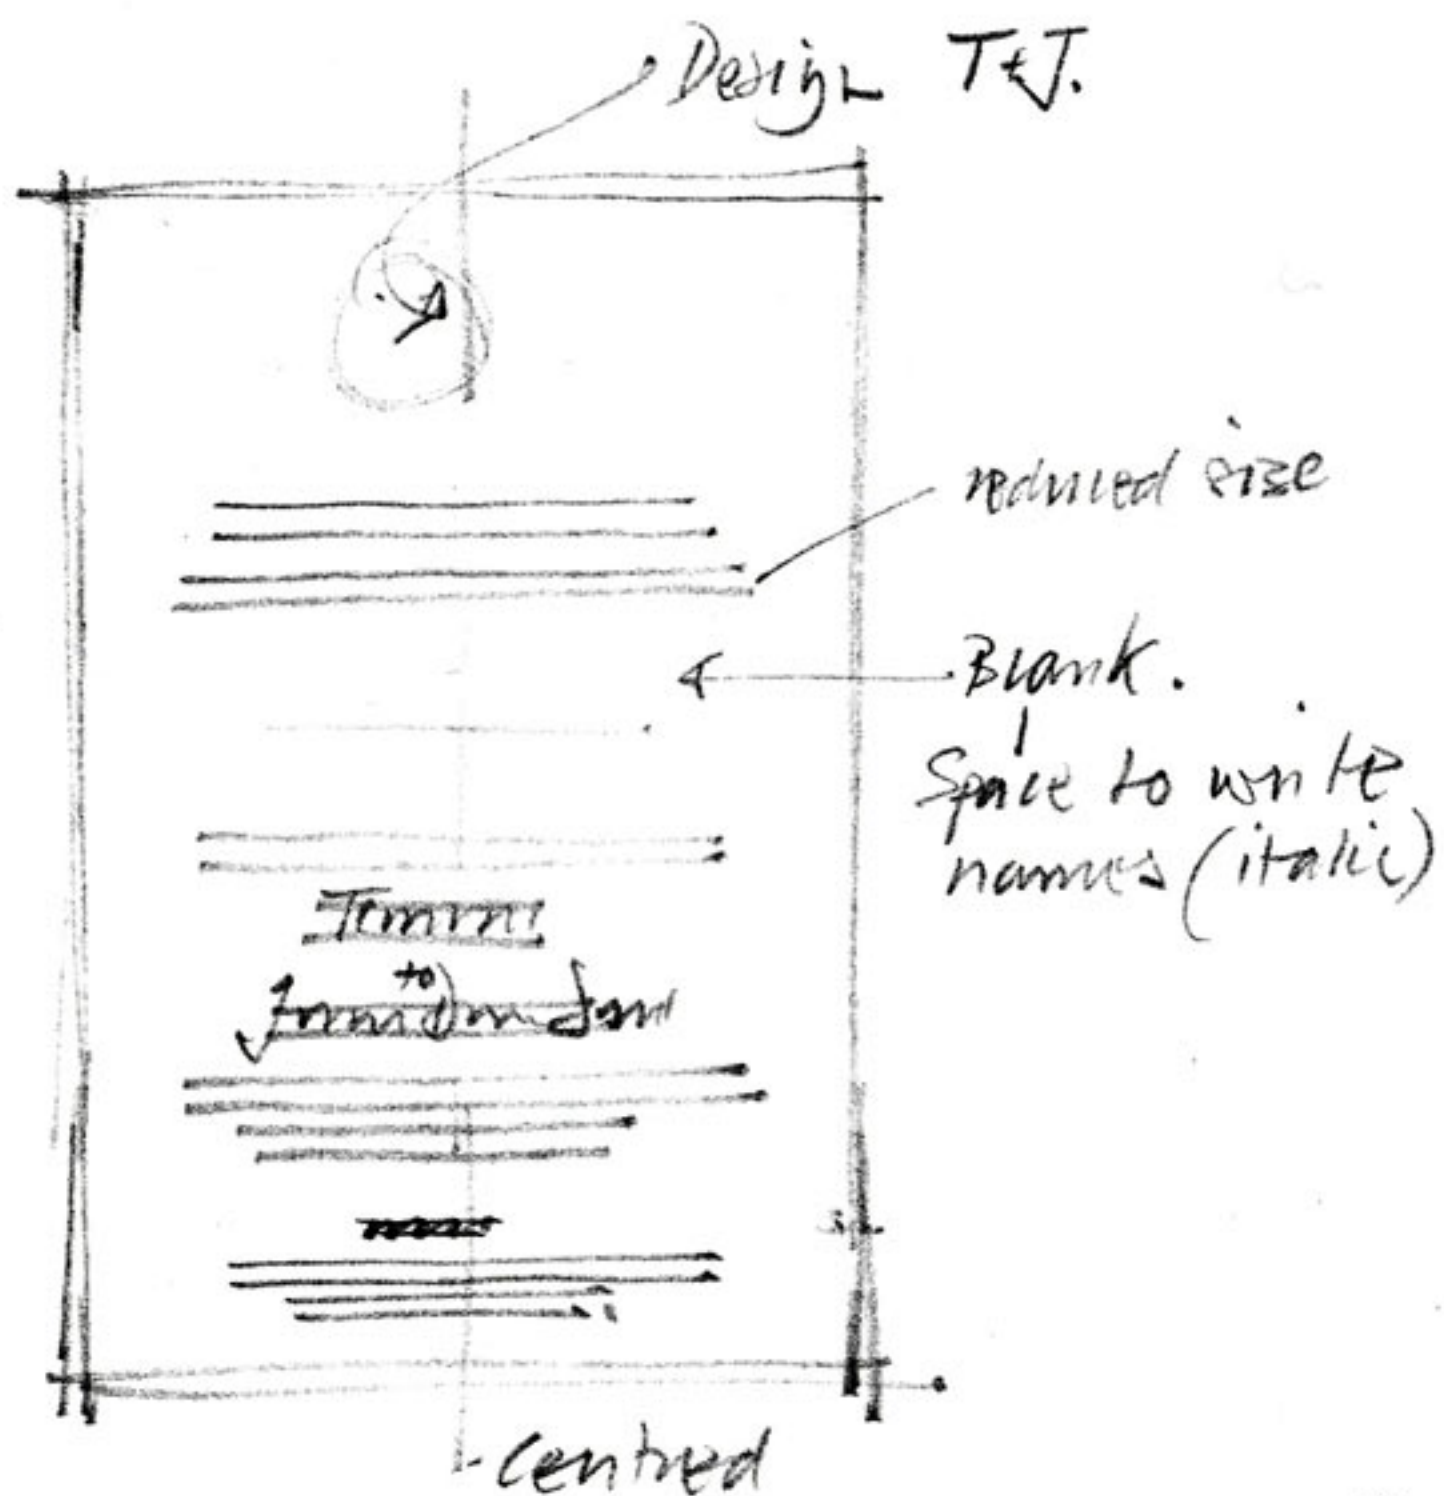 Design T&J.
reduced size
Blank.
Space to write
names (italic)
to
Centred